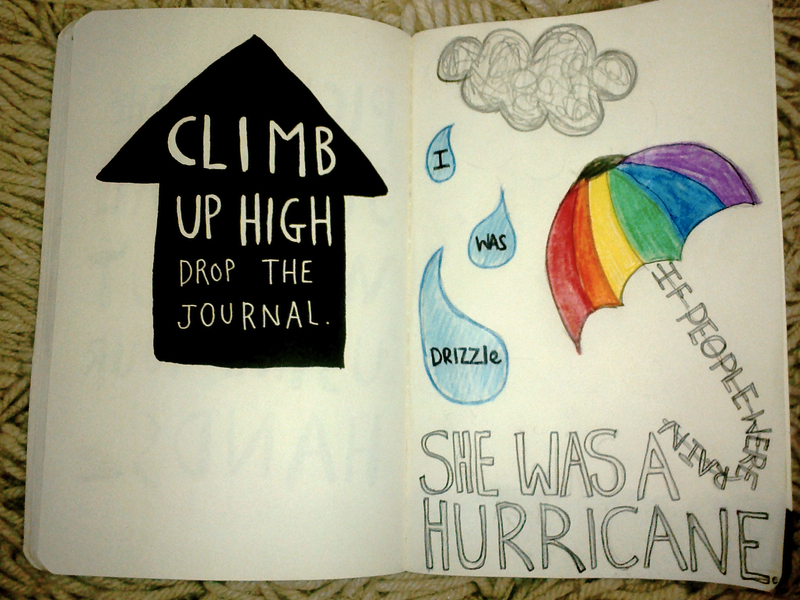 CLIMB
UP HIGH
DROP THE
JOURNAL.
IF PEOPLE WERE
RAIN
I
WAS
DRIZZle
SHE WAS A
HURRICANE